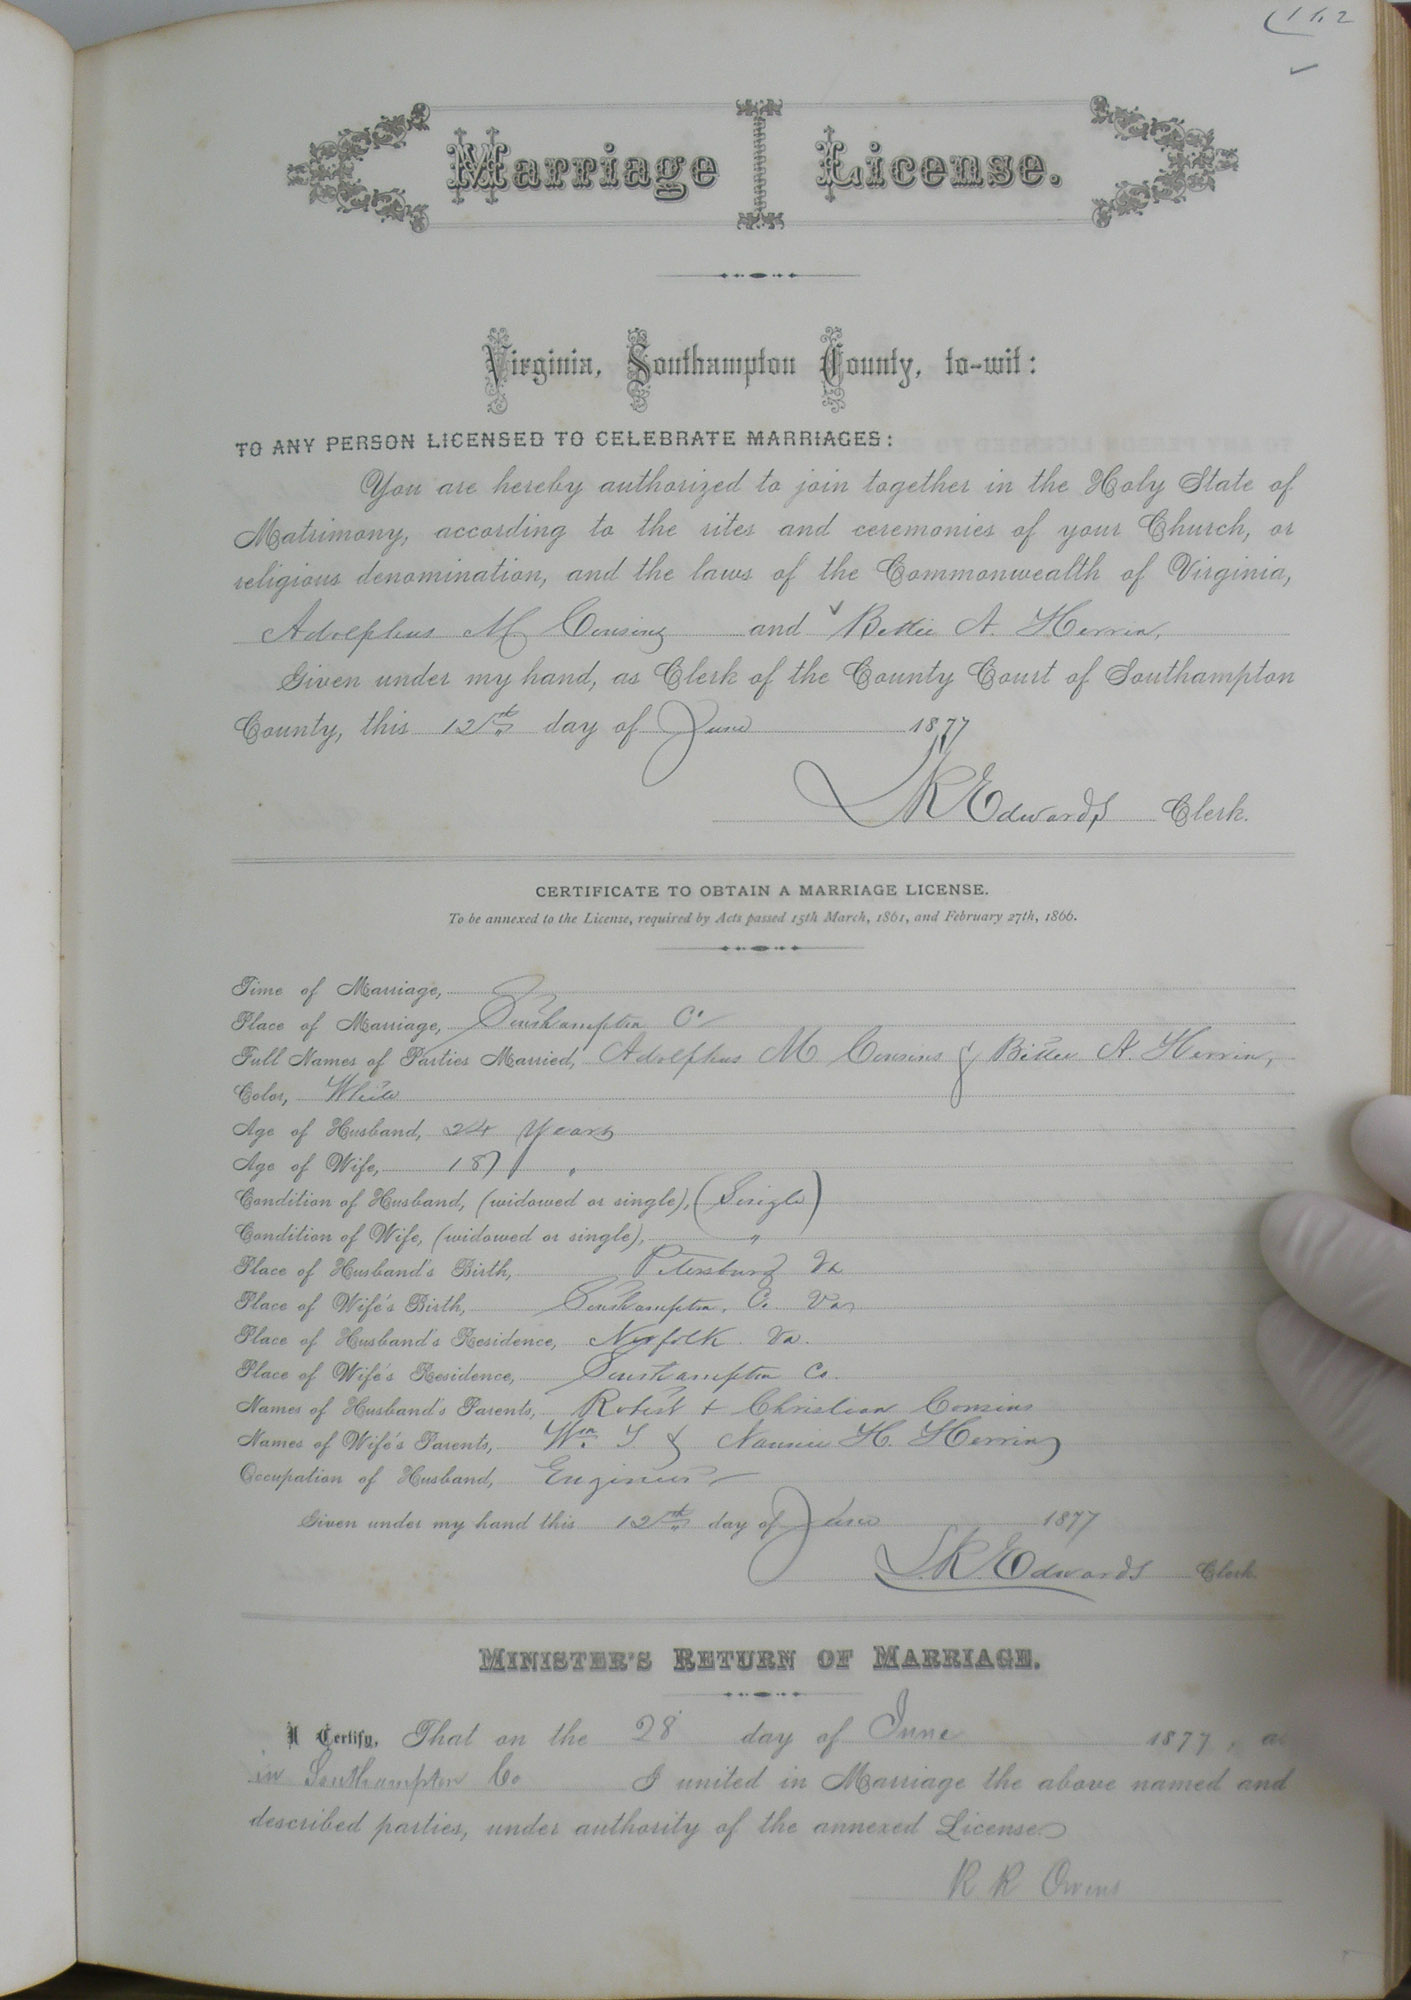 Marriage License.
Virginia, Southampton County, to-wit:
TO ANY PERSON LICENSED TO CELEBRATE MARRIAGES:
You are hereby authorized to join together in the Holy State of
Matrimony, according to the rites and ceremonies of your Church, or
religious denomination, and the laws of the Commonwealth of Virginia,
Adolphus M Cousins and Bettie A. Herrin,
Given under my hand, as Clerk of the County Court of Southampton
County, this 12th day of June 1877
L R Edwards Clerk.
CERTIFICATE TO OBTAIN A MARRIAGE LICENSE.
To be annexed to the License, required by Acts passed 15th March, 1861, and February 27th, 1866.
Time of Marriage,
Place of Marriage, Southampton Co
Full Names of Parties Married, Adolphus M Cousins & Bettie A. Herrin,
Color, White
Age of Husband, 24 Years
Age of Wife, 18 "
Condition of Husband, (widowed or single), (Single)
Condition of Wife, (widowed or single), "
Place of Husband's Birth, Petersburg Va
Place of Wife's Birth, Southampton, Co. Va
Place of Husband's Residence, Norfolk Va.
Place of Wife's Residence, Southampton Co.
Names of Husband's Parents, Robert + Christian Cousins
Names of Wife's Parents, Wm. T & Nannie H. Herrin
Occupation of Husband, Engineer
Given under my hand this 12th day of June 1877
L. R. Edwards Clerk
MINISTER'S RETURN OF MARRIAGE.
I Certify, That on the 28 day of June 1877, at
in Southampton Co I united in Marriage the above named and
described parties, under authority of the annexed License.
R R Owens